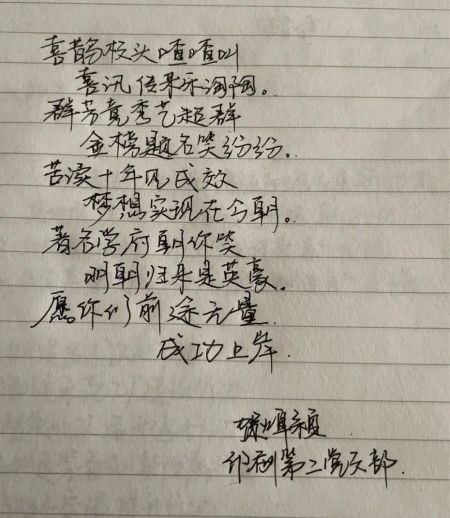 喜鹊枝头喳喳叫
喜讯传来乐淘陶。
群芳竞秀艺超群
金榜题名笑纷纷。
苦读十年见成效
梦想实现在今朝。
著名学府朝你笑
明朝归来是英豪。
愿你们前途无量
成功上岸.
印刷第二党支部.